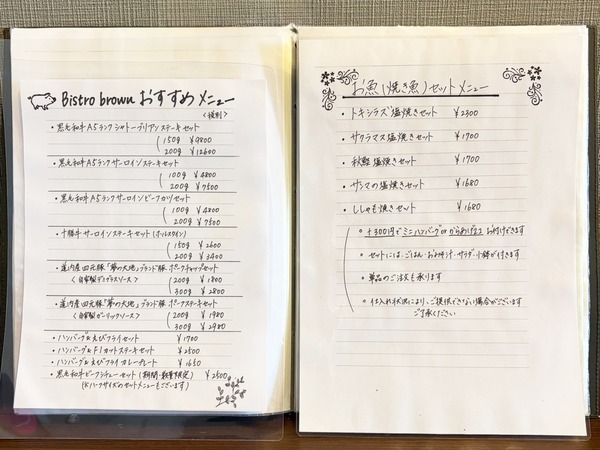 Bistro brown おすすめメニュー
<税別>
・黒毛和牛A5ランクシャトーブリアンステーキセット
150g ¥9800
200g ¥12600
・黒毛和牛A5ランクサーロインステーキセット
100g ¥4800
200g ¥7500
・黒毛和牛A5ランクサーロインビーフカツセット
100g ¥4800
200g ¥7500
・十勝牛サーロインステーキセット(ホルスタイン)
150g ¥2600
200g ¥3400
・道内産四元豚「夢の大地」ブランド豚 ポークチャップセット
<自家製デミグラスソース> 200g ¥1800
300g ¥2800
・道内産四元豚「夢の大地」ブランド豚 ポークステーキセット
<自家製ガーリックソース> 200g ¥1980
300g ¥2980
・ハンバーグ&えびフライセット ¥1700
・ハンバーグ&F1カットステーキセット ¥2500
・ハンバーグ&えびフライカレープレート ¥1650
・黒毛和牛ビーフシチューセット(期間・数量限定) ¥2500
(※ハーフサイズのセットメニューもございます)
お魚(焼き魚)セットメニュー
・トキシラズ塩焼きセット ¥2300
・サクラマス塩焼きセット ¥1700
・秋鮭塩焼きセット ¥1700
・サンマの塩焼きセット ¥1680
・ししゃも焼きセット ¥1680
○ +300円でミニハンバーグor からあげ2コ お付けできます
○ セットには、ごはん・おみそ汁・サラダ・小鉢が付きます
○ 単品のご注文も承ります
○ 仕入れ状況により、ご提供できない場合がございます
ご了承ください